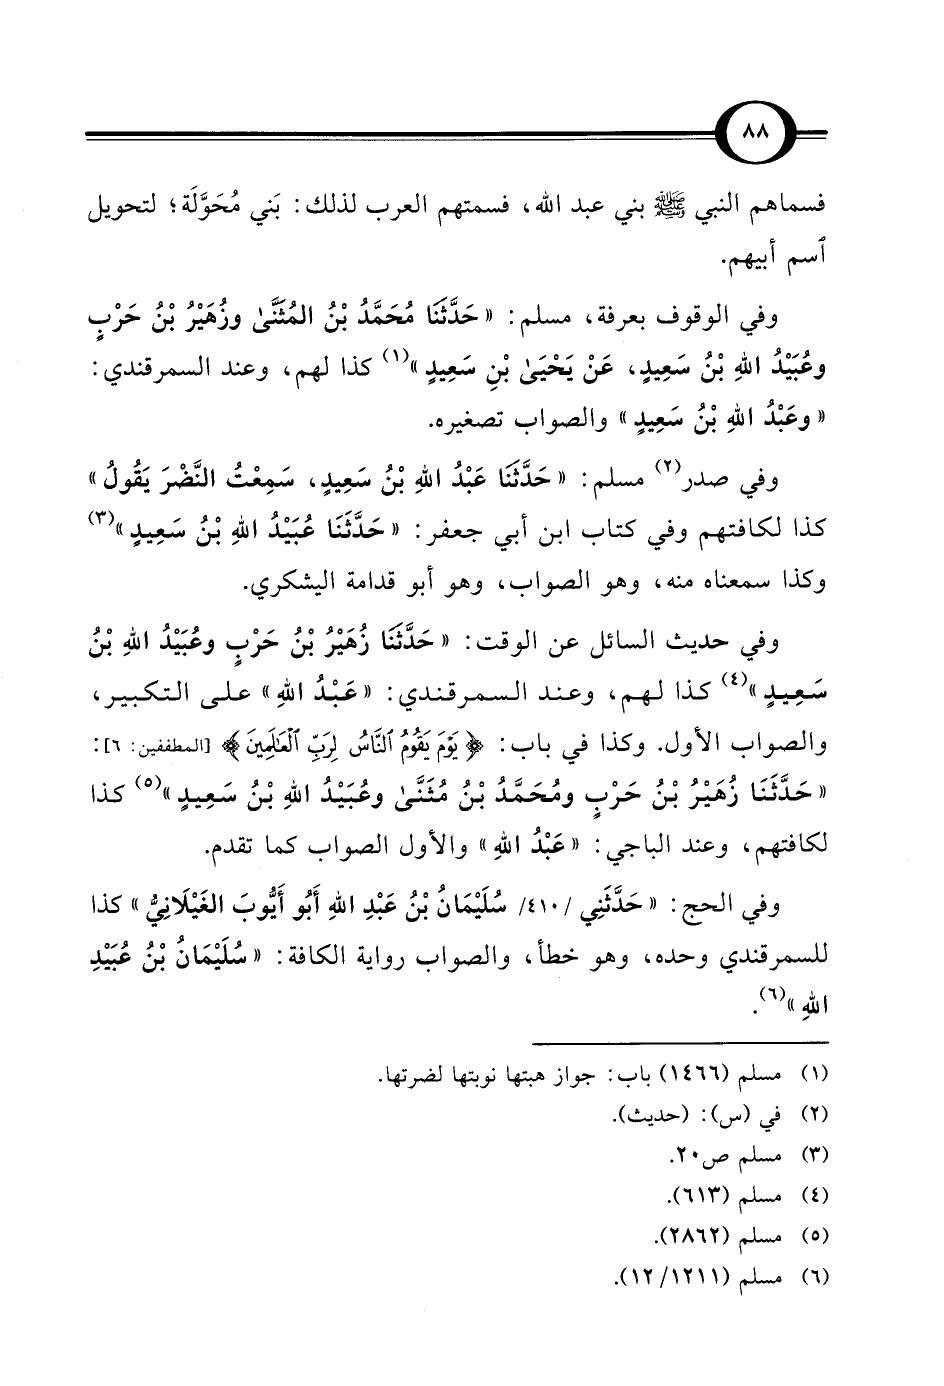 ٨٨
فسماهم النبي ﷺ بني عبد الله، فسمتهم العرب لذلك: بَني مُحَوَّلَة؛ لتحويل
ٱسم أبيهم.
وفي الوقوف بعرفة، مسلم: «حَدَّثَنَا مُحَمَّدُ بْنُ المُثَنَّىٰ وزُهَيْرُ بْنُ حَرْبٍ
وعُبَيْدُ اللهِ بْنُ سَعِيدٍ، عَنْ يَحْيَىٰ بْنِ سَعِيدٍ»(١) كذا لهم، وعند السمرقندي:
«وعَبْدُ اللهِ بْنُ سَعِيدٍ» والصواب تصغيره.
وفي صدر(٢) مسلم: «حَدَّثَنَا عَبْدُ اللهِ بْنُ سَعِيدٍ، سَمِعْتُ النَّضْرَ يَقُولُ»
كذا لكافتهم وفي كتاب ابن أبي جعفر: «حَدَّثَنَا عُبَيْدُ اللهِ بْنُ سَعِيدٍ»(٣)
وكذا سمعناه منه، وهو الصواب، وهو أبو قدامة اليشكري.
وفي حديث السائل عن الوقت: «حَدَّثَنَا زُهَيْرُ بْنُ حَرْبٍ وعُبَيْدُ اللهِ بْنُ
سَعِيدٍ»(٤) كذا لهم، وعند السمرقندي: «عَبْدُ اللهِ» على التكبير،
والصواب الأول. وكذا في باب: ﴿يَوْمَ يَقُومُ ٱلنَّاسُ لِرَبِّ ٱلْعَٰلَمِينَ﴾ [المطففين: ٦]:
«حَدَّثَنَا زُهَيْرُ بْنُ حَرْبٍ ومُحَمَّدُ بْنُ مُثَنَّىٰ وعُبَيْدُ اللهِ بْنُ سَعِيدٍ»(٥) كذا
لكافتهم، وعند الباجي: «عَبْدُ اللهِ» والأول الصواب كما تقدم.
وفي الحج: «حَدَّثَنِي /٤١٠/ سُلَيْمَانُ بْنُ عَبْدِ اللهِ أَبُو أَيُّوبَ الغَيْلَانِيُّ» كذا
للسمرقندي وحده، وهو خطأ، والصواب رواية الكافة: «سُلَيْمَانُ بْنُ عُبَيْدِ
اللهِ»(٦).
(١) مسلم (١٤٦٦) باب: جواز هبتها نوبتها لضرتها.
(٢) في (س): (حديث).
(٣) مسلم ص٢٠.
(٤) مسلم (٦١٣).
(٥) مسلم (٢٨٦٢).
(٦) مسلم (١٢١١/ ١٢).